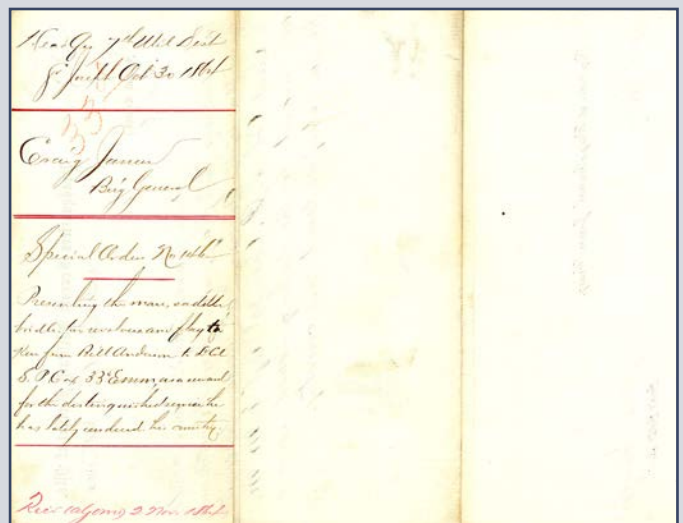 Head Qrs 7th Mil Dist
St Joseph Oct 30 1864
Craig James
Brig General
Special Order No 146
Presenting the mare, saddle
bridle, revolvers and flag ta
ken from Bill Anderson to Lt Col
S. P. Cox 33d as a reward
for the distinguished service he
has lately rendered his country.
Recd 2 Nov 1864